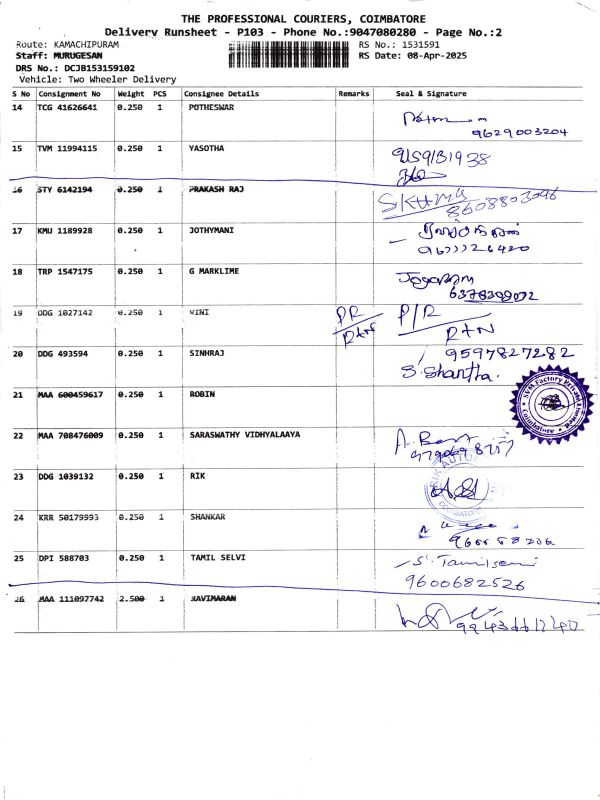 THE PROFESSIONAL COURIERS, COIMBATORE
Delivery Runsheet - P103 - Phone No.:9047080280 - Page No.:2
Route: KAMACHIPURAM RS No.: 1531591
Staff: MURUGESAN RS Date: 08-Apr-2025
DRS No.: DCJB153159102
Vehicle: Two Wheeler Delivery
S No Consignment No Weight PCS Consignee Details Remarks Seal & Signature
14 TCG 41626641 0.250 1 POTHESWAR
9629003204
15 TVM 11994115 0.250 1 YASOTHA
16 STY 6142194 0.250 1 PRAKASH RAJ
8608803096
17 KMU 1189928 0.250 1 JOTHYMANI
18 TRP 1547175 0.250 1 G MARKLIME
19 DDG 1027142 0.250 1 WINI PR P/R
RtN RtN
20 DDG 493594 0.250 1 SINHRAJ 9597827282
S. Shantha.
21 MAA 600459617 0.250 1 ROBIN
SVM Factory
Coimbatore
22 MAA 708476009 0.250 1 SARASWATHY VIDHYALAAYA
23 DDG 1039132 0.250 1 RIK
24 KRR 50179993 0.250 1 SHANKAR
25 DPI 588703 0.250 1 TAMIL SELVI
9600682526
26 MAA 111097742 2.500 1 RAVIMARAN